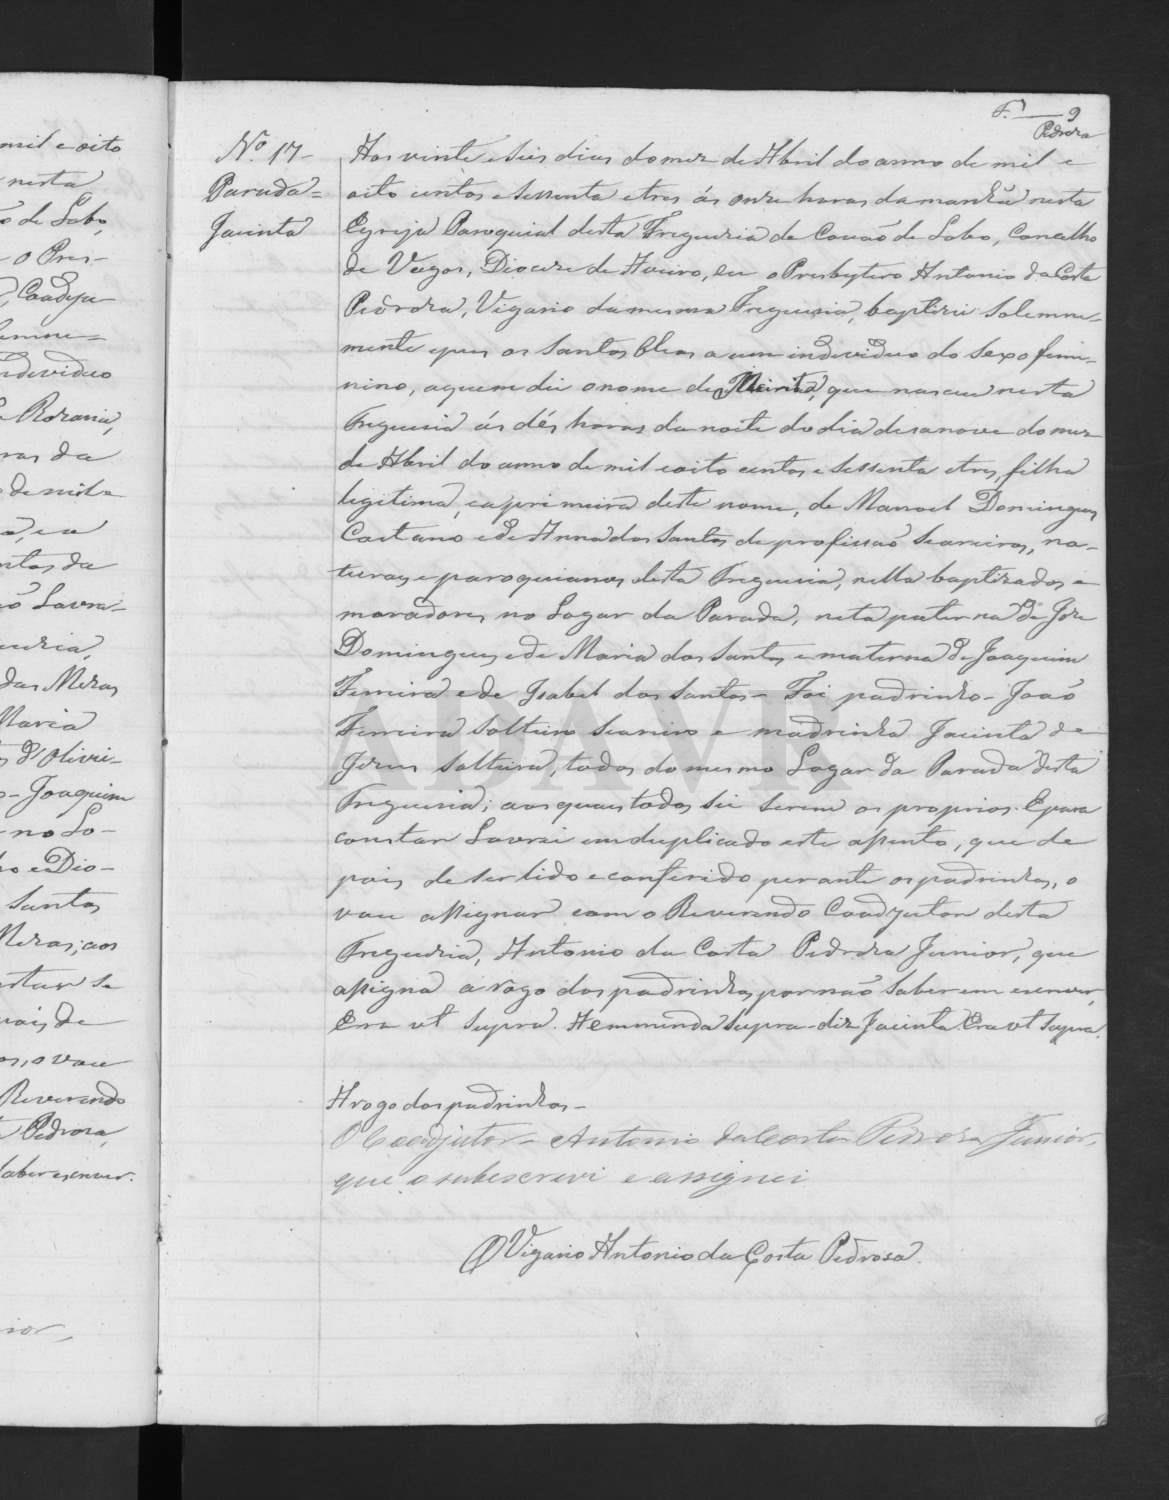 mil e oito
nesta
o de Sobo,
o Pres-
Coadju
lemne-
ndevideo
Rozaria,
ras da
de mil e
ntos da
Lavra-
guezia,
das Mezas
Maria
d'Olivei-
Joaquim
no Lo-
Dio-
Santos
Mezas; aos
pois de
os, o vou
Reverendo
Pedroza,
saber escrever.
nior,
F. 9
Pedroza
Nº 17-
Parada=
Jacinta
Aos vinte e seis dias do mez de Abril do anno de mil e
oito centos e sessenta e tres ás onze horas da manhã nesta
Egreija Paroquial desta Freguezia de Covão de Lobo, Concelho
de Vagos, Diocese de Aveiro, eu o Presbytero Antonio da Costa
Pedroza, Vigario da mesma Freguezia, baptizei solemne-
mente e pus os santos Oleos a um individuo do sexo femi-
nino, a quem dei o nome de que nasceu nesta
Freguezia ás dés horas da noite do dia desanove do mez
de Abril do anno de mil e oito centos e sessenta e tres, filha
legitima, e a primeira deste nome, de Manoel Domingues
Caetano e de Anna dos Santos de profissão Seareiros, na-
turaes e paroquianos desta Freguezia, nella baptizados e
moradores no Logar da Parada, neta paterna de Joze
Domingues e de Maria dos Santos e materna de Joaquim
Ferreira e de Isabel dos Santos - Foi padrinho - João
Ferreira solteiro Seareiro e madrinha Jacinta de
Jezus solteira, todos do mesmo Logar da Parada desta
Freguezia; aos quaes todos sei serem os proprios. E para
constar Lavrei em duplicado este assento, que de
pois de ser lido e conferido perante os padrinhos, o
vou assignar com o Reverendo Coadjutor desta
Freguezia, Antonio da Costa Pedroza Junior, que
assigna a rogo dos padrinhos por não saberem escrever,
Era ut supra. A emmenda supra - diz Jacinta. Era ut supra.
A rogo dos padrinhos -
O Coadjutor - Antonio da Costa Pedroza Junior,
que o subescrevi e assignei
O Vigario Antonio da Costa Pedrosa.
ADAVR